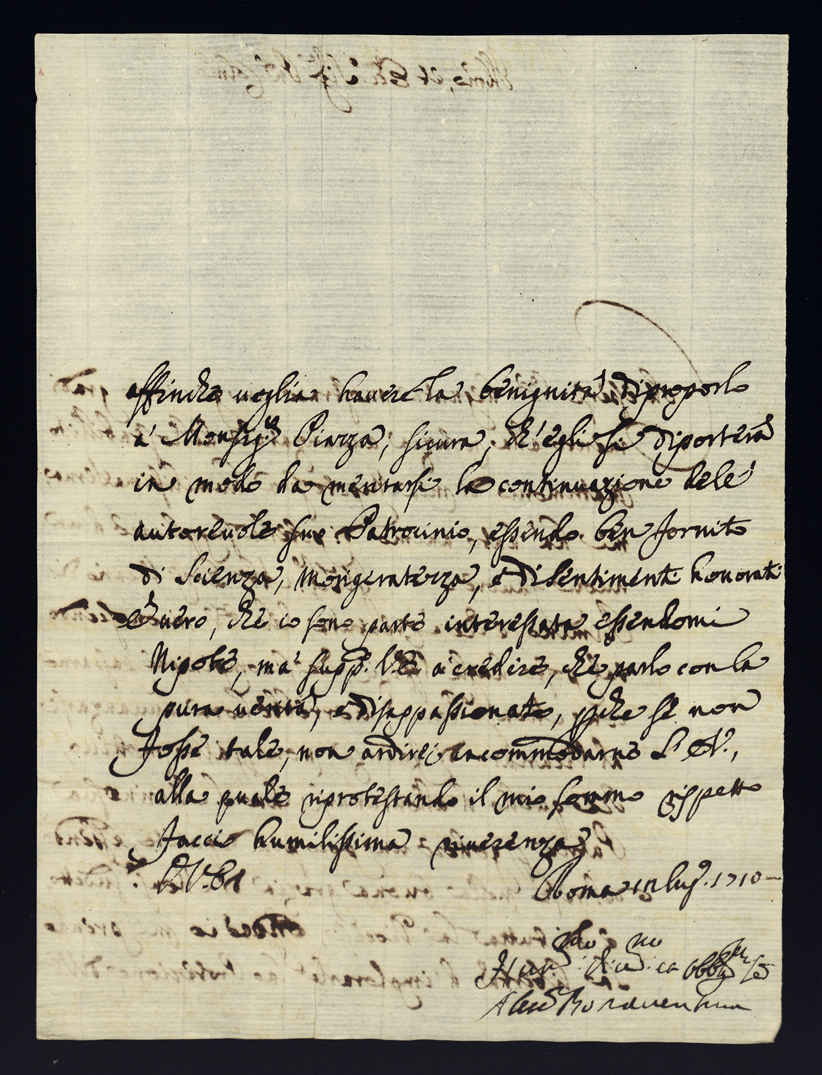 affinche voglia havere la benignità di proporlo
à Monsig.re Piazza, sicura, ch'egli si diporterà
in modo da meritarsi la continuazione dele
autorevole suo Patrocinio, essendo ben fornito
di scienza, morigeratezza, e di sentimenti honorati
è vero, che io sono parte interessata essendomi
Nipote, ma supp.co V.E. à credere, che parlo con la
pura verità, e disappassionato, perche se non
fosse tale, non ardirei incommodarne l'E.V.,
alla quale riprotestando il mio sommo rispetto
faccio humilissima riverenza
Roma lug.o 1710
Aless.o Bonaventura